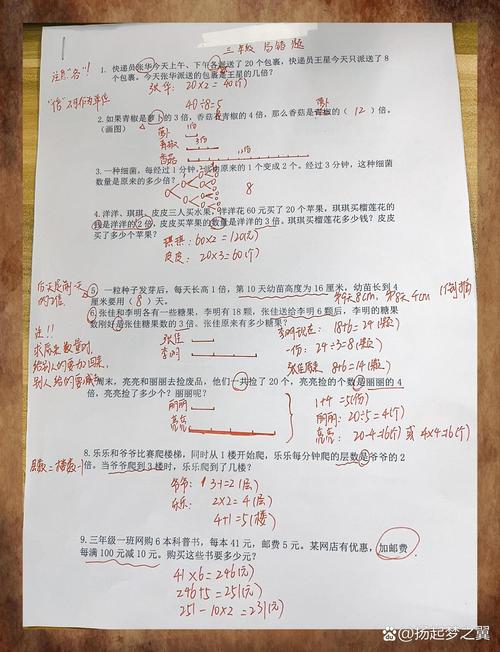 三年级 易错题
注意“各”!!
1. 快递员张华今天上午、下午各派送了 20 个包裹，快递员王星今天只派送了 8
个包裹。今天张华派送的包裹是王星的几倍？
张华: 20×2=40(个)
“倍”不能作为单位
40÷8=5
2. 如果青椒是萝卜的 3 倍，香菇是青椒的 4 倍，那么香菇是萝卜的（ 12 ）倍。
（画图）
萝卜
青椒
香菇
3. 一种细菌，每经过 1 分钟，就由原来的 1 个变成 2 个。经过 3 分钟，这种细菌
数量是原来的多少倍？
8
4. 洋洋、琪琪、皮皮三人买水果，洋洋花 60 元买了 20 个苹果，琪琪买榴莲花的
钱是洋洋的 2 倍，皮皮买苹果的数量是洋洋的 3 倍。琪琪买榴莲花多少钱？皮皮
买了多少个苹果？
琪琪: 60×2=120(元)
皮皮: 20×3=60(个)
后天是前一天
的2倍
5 一粒种子发芽后，每天长高 1 倍，第 10 天幼苗高度为 16 厘米，幼苗长到 4
厘米要用（ 8 ）天。
第9天8cm, 第8天4cm (倒推)
6. 张佳和李明各有一些糖果，李明有 18 颗，张佳送给李明 6 颗后，李明的糖果
数刚好是张佳糖果数的 3 倍。张佳原来有多少糖果？
注!!
求原来数量时,
给别人的要加回来,
别人给的要减
张佳
李明
李明现在: 18+6=24(颗)
一份: 24÷3=8(颗)
张佳原来: 8+6=14(颗)
周末，亮亮和丽丽去捡废品，他们一共捡了 20 个，亮亮捡的个数是丽丽的 4
倍，亮亮捡了多少个？丽丽呢？
丽丽
亮亮
1+4=5(份)
丽丽: 20÷5=4(个)
亮亮: 20-4=16(个) 或 4×4=16(个)
8. 乐乐和爷爷比赛爬楼梯，同时从 1 楼开始爬，乐乐每分钟爬的层数是爷爷的 2
倍。当爷爷爬到 3 楼时，乐乐爬到了几楼？
层数=楼数-1
爷爷: 3-1=2(层)
乐乐: 2×2=4(层)
4+1=5(楼)
9. 三年级一班网购 6 本科普书，每本 41 元，邮费 5 元。某网店有优惠，加邮费
每满 100 元减 10 元。购买这些书要多少元？
41×6=246(元)
246+5=251(元)
251-10×2=231(元)
@扬起梦之翼